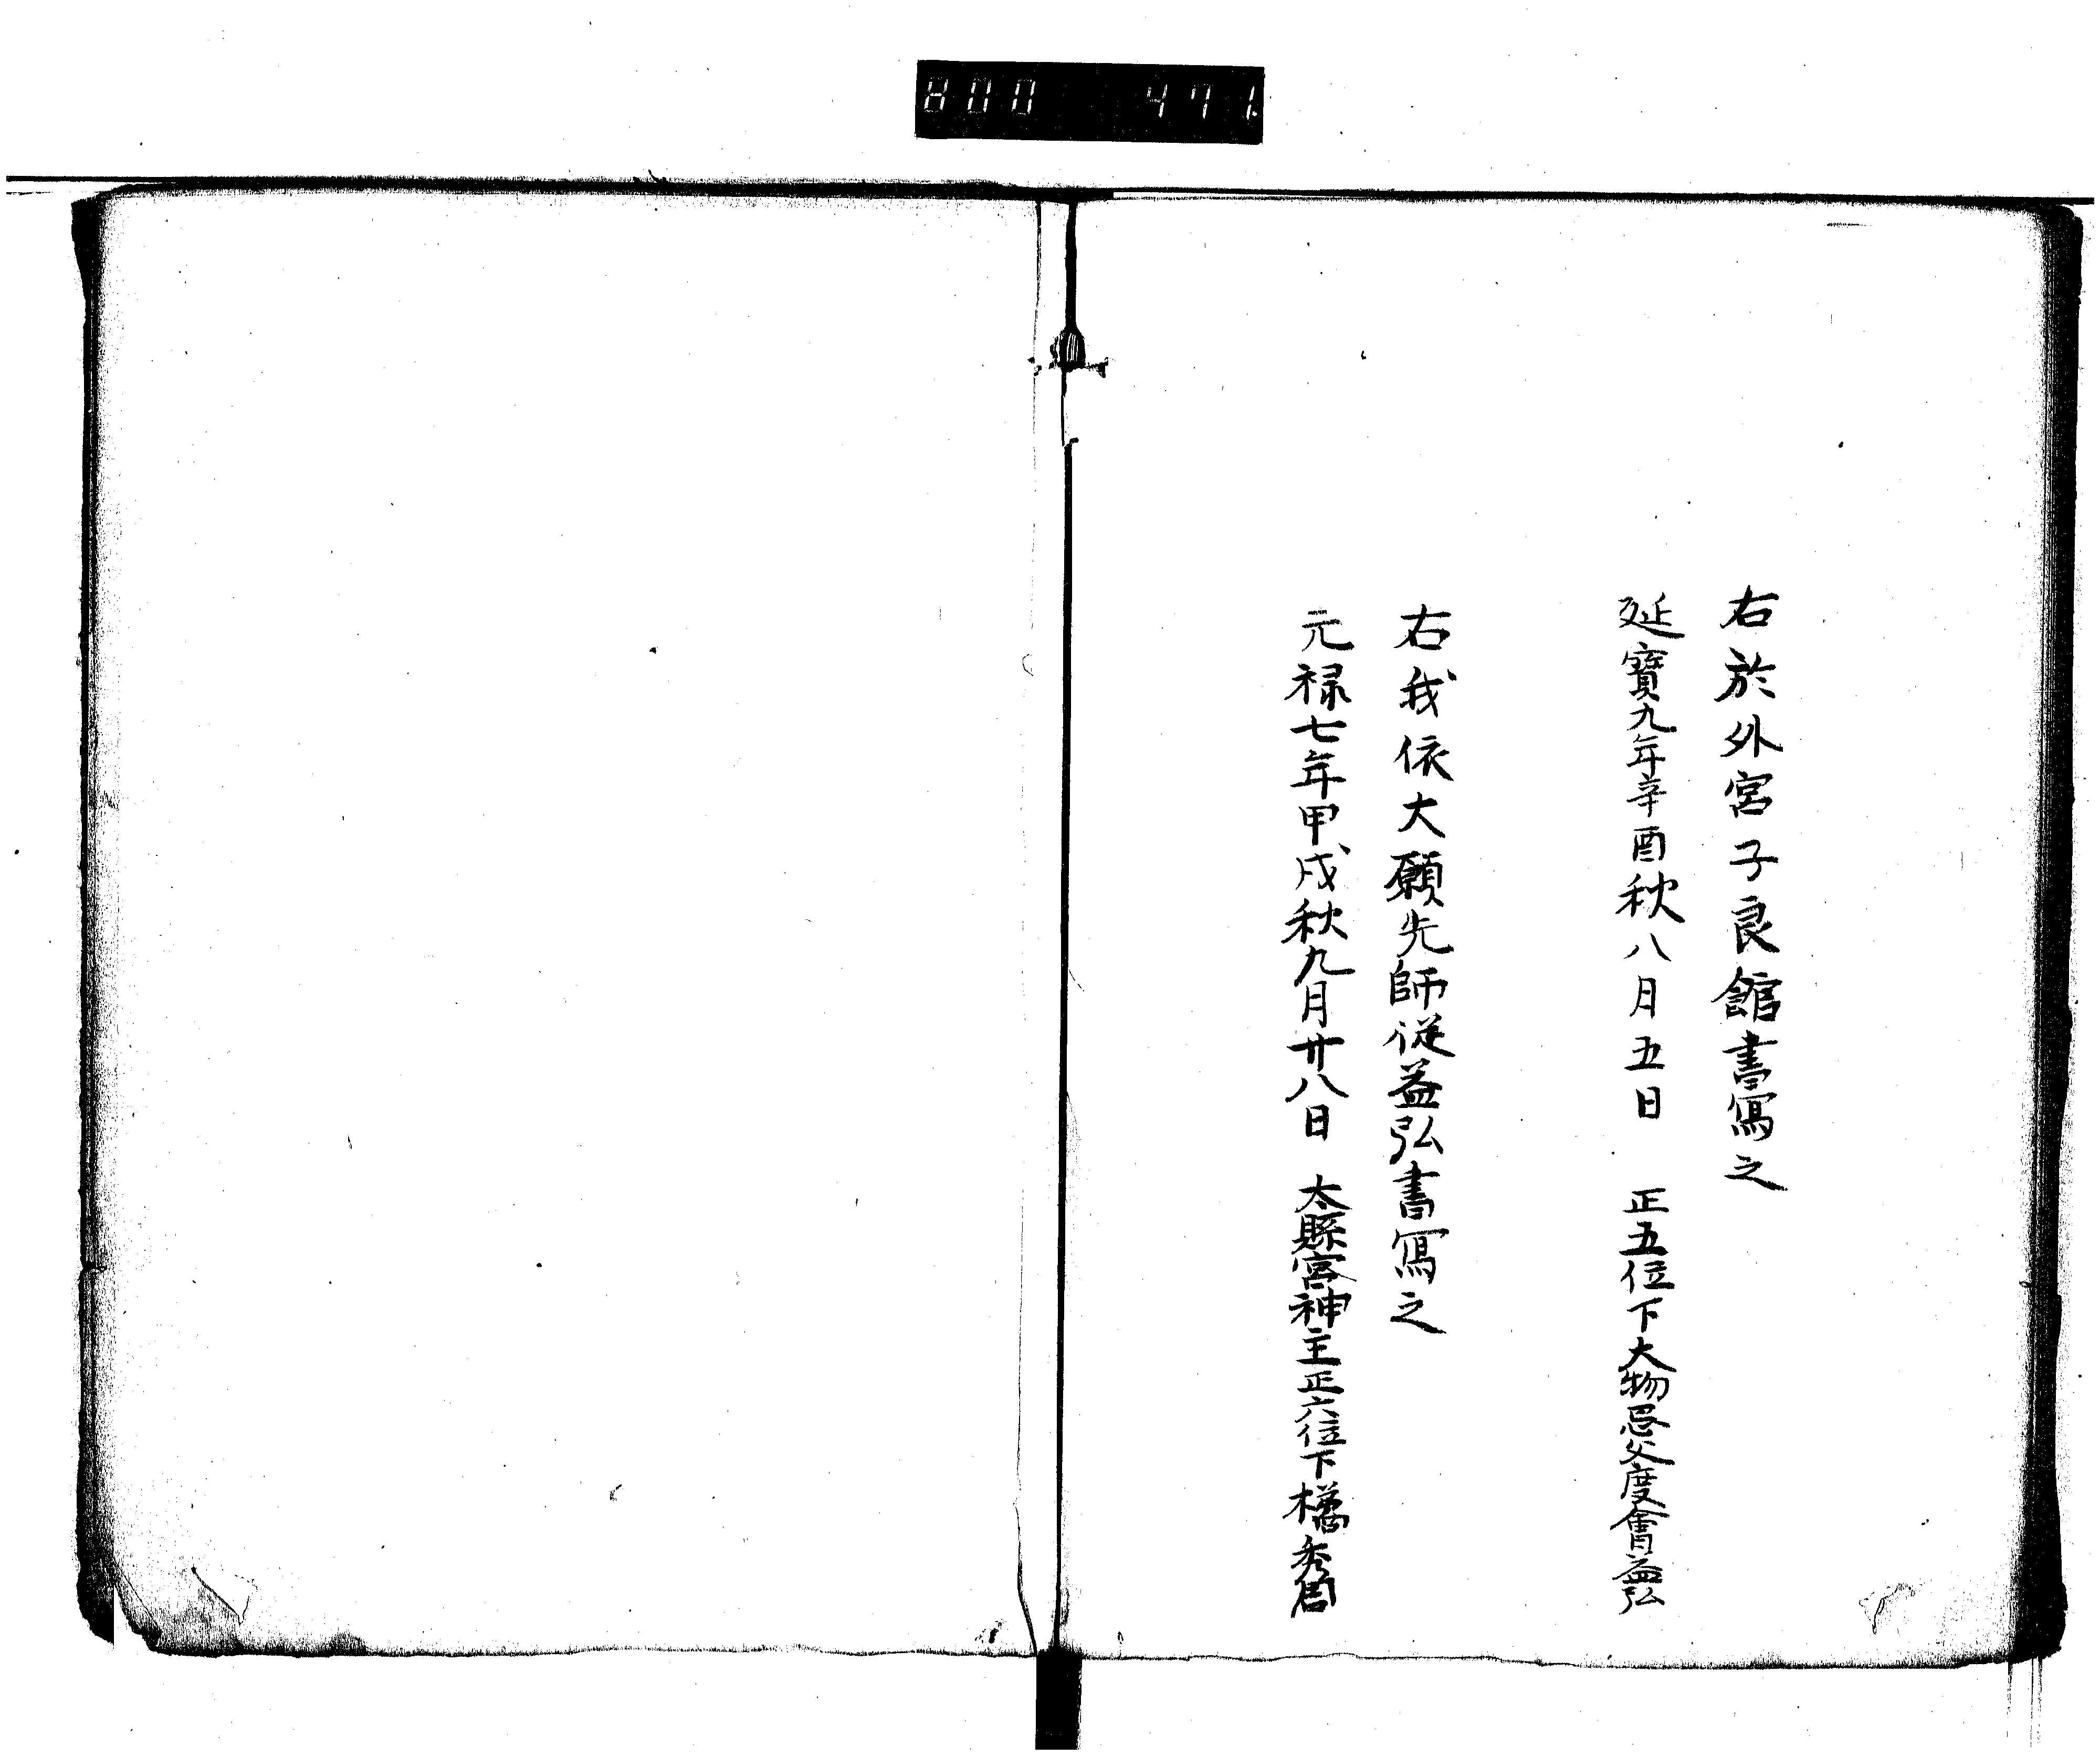 800 471
右於外宮子良館書寫之
延寶九年辛酉秋八月五日 正五位下大物忌父度會益弘
右我依大願先師從益弘書寫之
元禄七年甲戌秋九月廿八日 太縣宮神主正六位下橘秀